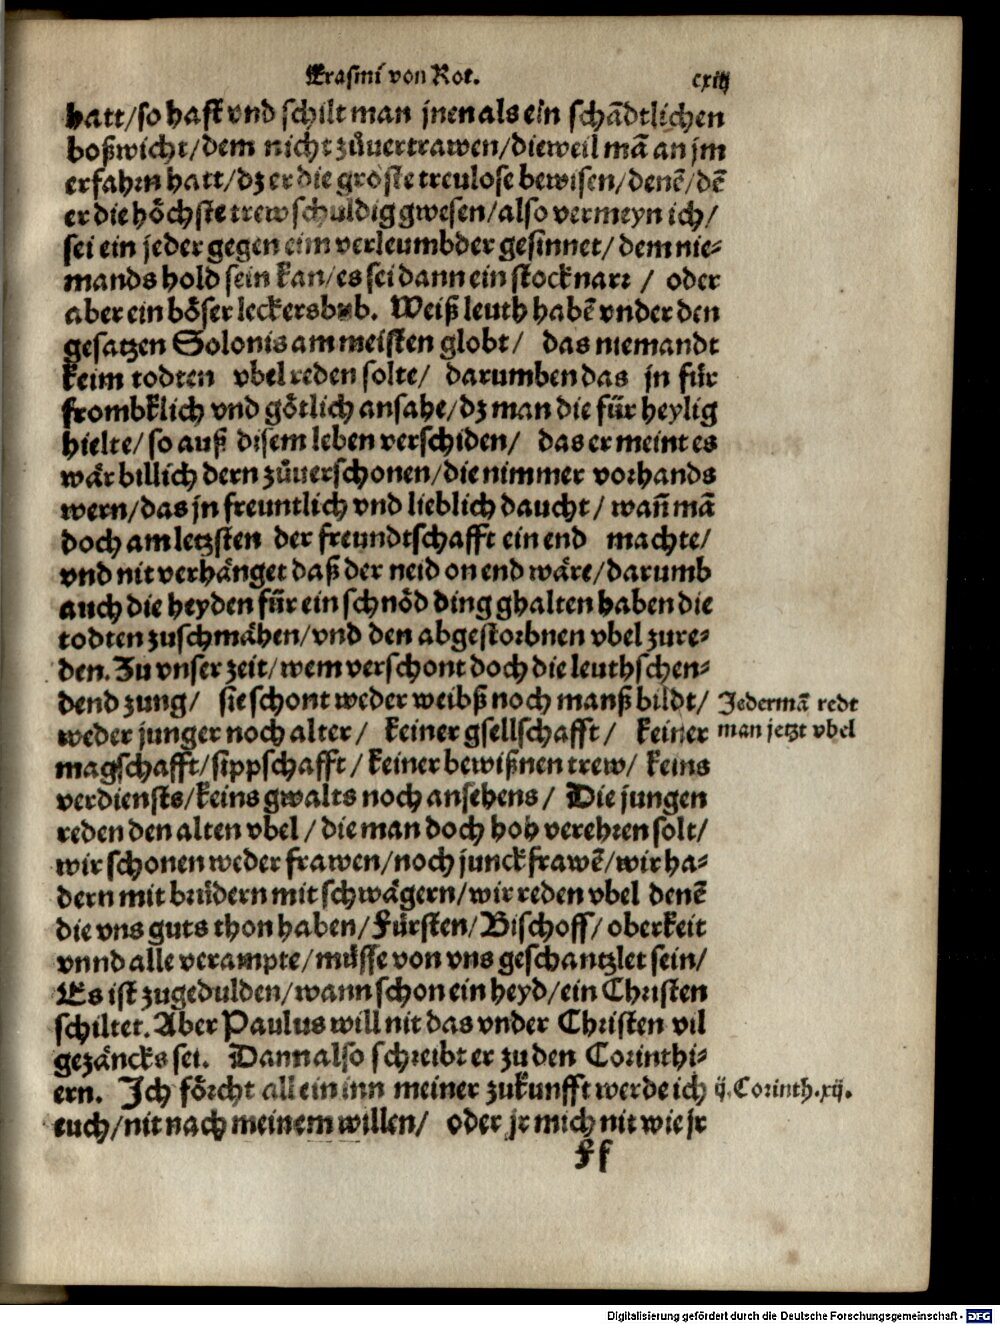 Erasmi von Rot. cxiij
hatt/so hast vnd schilt man jnen als ein schādtlichen
boßwicht/dem nicht zůuertrawen/dieweil mā an jm
erfahrn hatt/dz er die gröste treulose bewisen/denē/dē
er die höchste trew schuldig gwesen/also vermeyn ich/
sei ein jeder gegen eim verleumbder gesinnet/dem nie-
mands hold sein kan/es sei dann ein stocknarr / oder
aber ein böser leckersbub. Weiß leuth habē vnder den
gesatzen Solonis am meisten globt/ das niemandt
keim todten vbel reden solte/ darumben das jn für
frombklich vnd götlich ansahe/dz man die für heylig
hielte/so auß disem leben verschiden/ das er meint es
wär billich dern zůuerschonen/die nimmer vorhands
wern/das jn freuntlich vnd lieblich daucht/ wañ mā
doch am letzsten der freundtschafft ein end machte/
vnd nit verhänget daß der neid on end wäre/darumb
auch die heyden für ein schnöd ding ghalten haben die
todten zuschmähen/vnd den abgestorbnen vbel zure-
den. Zu vnser zeit/wem verschont doch die leuthschen-
dend zung/ sie schont weder weibß noch manß bildt/
weder junger noch alter/ keiner gsellschafft/ keiner
magschafft/sippschafft/keiner bewißnen trew/ keins
verdiensts/keins gwalts noch ansehens/ Die jungen
reden den alten vbel/die man doch hoh verehren solt/
wir schonen weder frawen/noch junckfrawē/wir ha-
dern mit brüdern mit schwägern/wir reden vbel denē
die vns guts thon haben/Fürsten/Bischoff/oberkeit
vnnd alle verampte/müsse von vns geschantzlet sein/
Es ist zugedulden/wann schon ein heyd/ein Christen
schiltet. Aber Paulus will nit das vnder Christen vil
gezäncks sei. Dann also schreibt er zu den Corinthi-
ern. Ich förcht allein inn meiner zukunfft werde ich
euch/nit nach meinem willen/ oder jr mich nit wie jr
Ff
Jedermā redt
man jetzt vbel
ij.Corinth.xij.
Digitalisierung gefördert durch die Deutsche Forschungsgemeinschaft - DFG